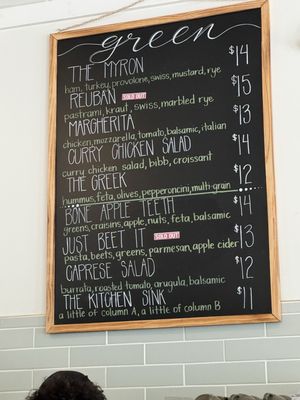 green
THE MYRON $14
ham, turkey, provolone, swiss, mustard, rye
REUBAN SOLD OUT $15
pastrami, kraut, swiss, marbled rye
MARGHERITA $13
chicken, mozzarella, tomato, balsamic, italian
CURRY CHICKEN SALAD $14
curry chicken salad, bibb, croissant
THE GREEK $12
hummus, feta, olives, pepperoncini, multi-grain
BONE APPLE TEETH $14
greens, craisins, apple, nuts, feta, balsamic
JUST BEET IT SOLD OUT $13
pasta, beets, greens, parmesan, apple cider
CAPRESE SALAD $12
burrata, roasted tomato, arugula, balsamic
THE KITCHEN SINK $11
a little of column A, a little of column B